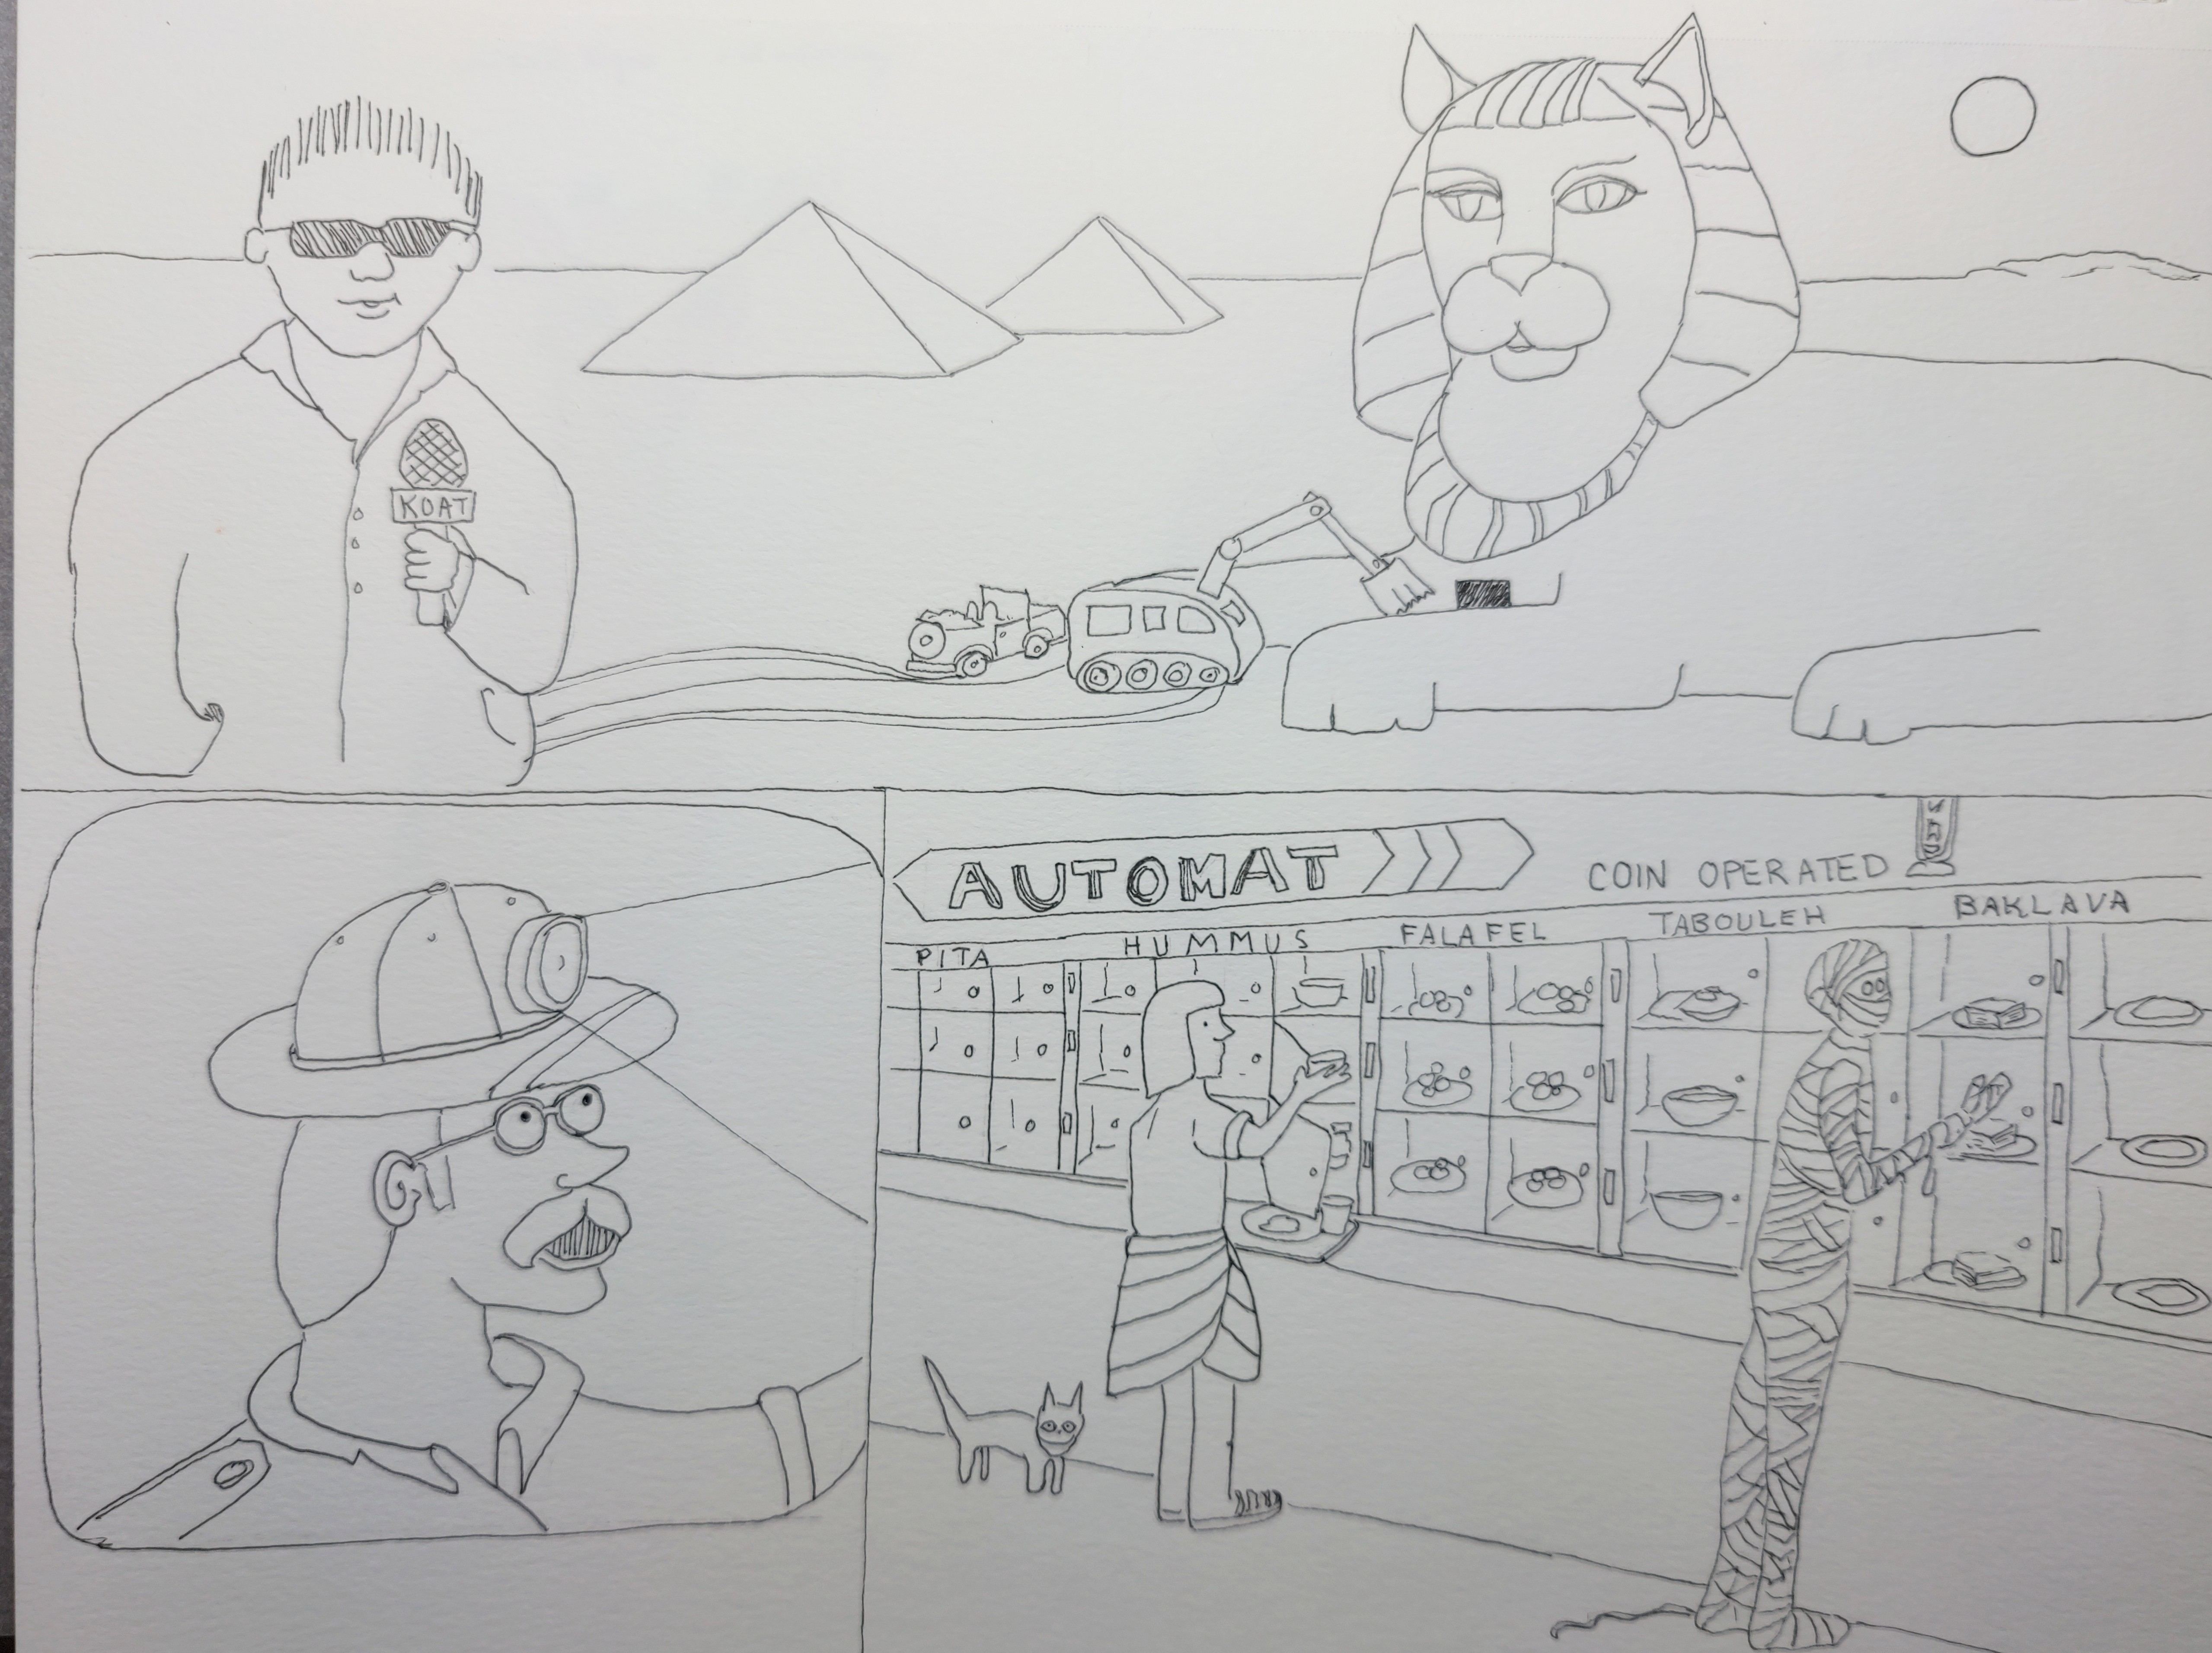 KOAT
AUTOMAT
COIN OPERATED
PITA
HUMMUS
FALAFEL
TABOULEH
BAKLAVA